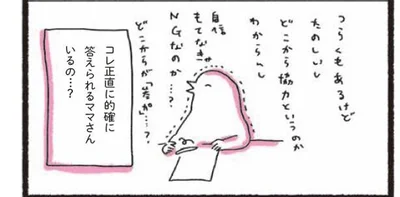 つらくもあるけど
たのしいし
どこから協力というのか
わからんし
自信
もてなきゃ
NGなのか…?
どこからが「苦労」…?
コレ正直に的確に
答えられるママさん
いるの…?